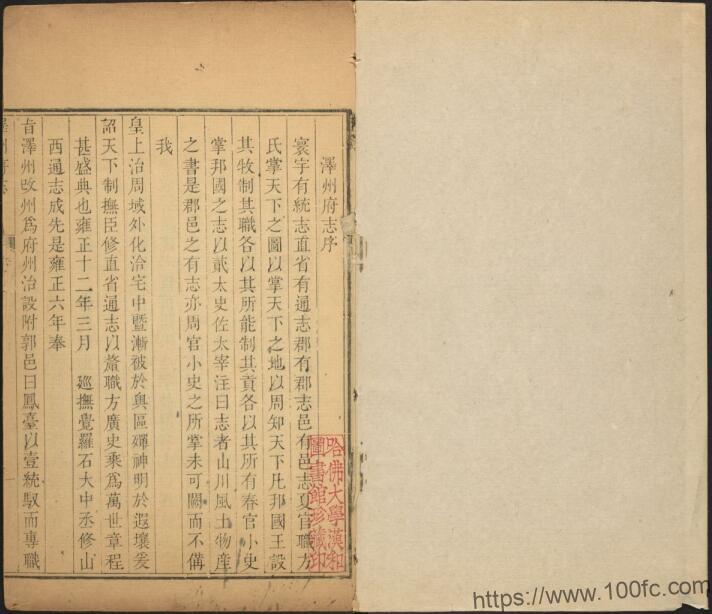 澤州府志序
寰宇有統志直省有通志郡有郡志邑有邑志夏官職方
氏掌天下之圖以掌天下之地以周知天下凡邦國王設
其牧制其職各以其所能制其貢各以其所有春官小史
掌邦國之志以貳太史佐太宰注曰志者山川風土物産
之書是郡邑之有志亦周官小史之所掌未可闕而不備
我
皇上治周域外化洽宅中曁漸被於輿區殫神明於遐壤爰
詔天下制撫臣修直省通志以
職方廣史乘爲萬世章程
甚盛典也雍正十二年三月 廵撫覺羅石大中丞修山
西通志成先是雍正六年奉
旨澤州改州爲府州治設附郭邑曰鳳臺以壹統馭而專職
澤州府志
哈佛大學漢和
圖書館珍藏印
https://www.100fc.com